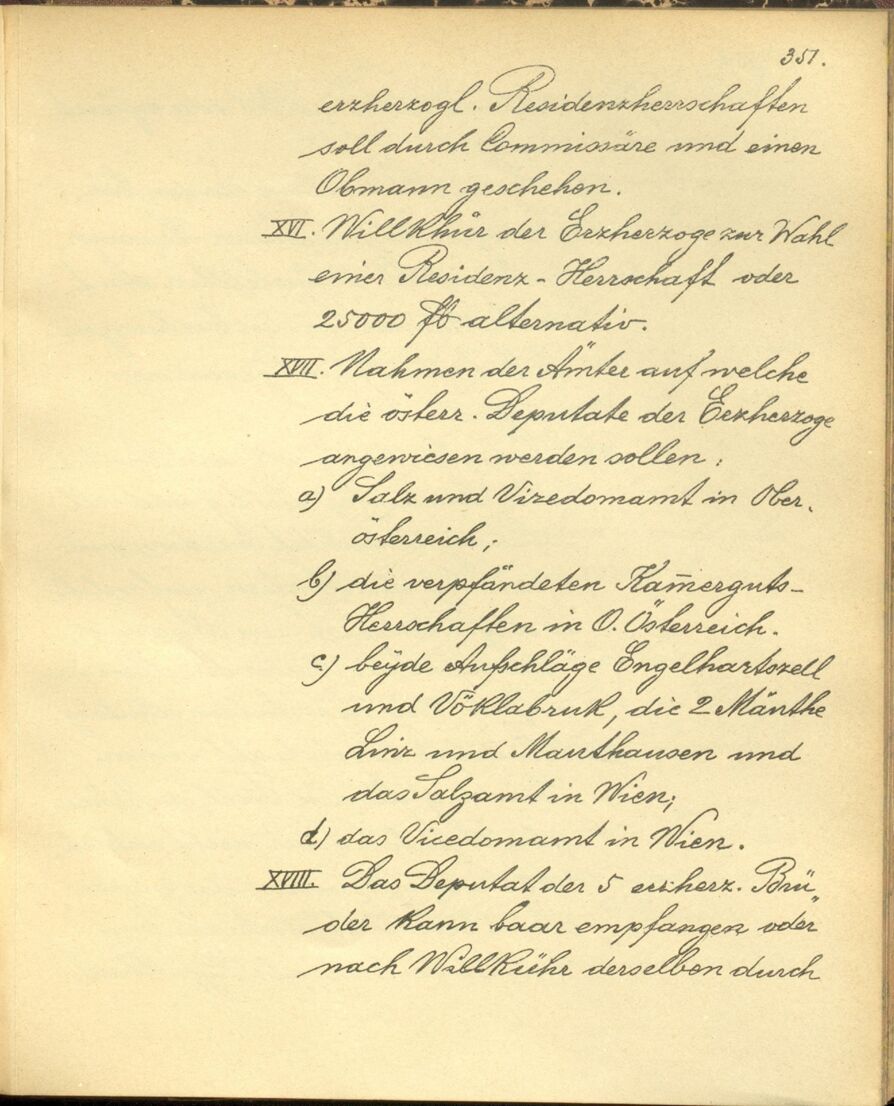 351.
erzherzogl. Residenzherrschaften
soll durch Commissäre und einen
Obmann geschehen.
XVI. Willkhür der Erzherzoge zur Wahl
einer Residenz-Herrschaft oder
25000 fl alternativ.
XVII. Nahmen der Ämter auf welche
die österr. Deputate der Erzherzoge
angewiesen werden sollen:
a) Salz und Vizedomamt in Ober-
österreich;
b) die verpfändeten Kam̅erguts-
Herrschaften in O. Österreich.
c) beyde Aufschläge Engelhartszell
und Vöklabruk, die 2 Mäuthe
Linz und Mauthausen und
das Salzamt in Wien;
d) das Vicedomamt in Wien.
XVIII. Das Deputat der 5 erzherz. Brü„
der kann baar empfangen oder
nach Willkühr derselben durch